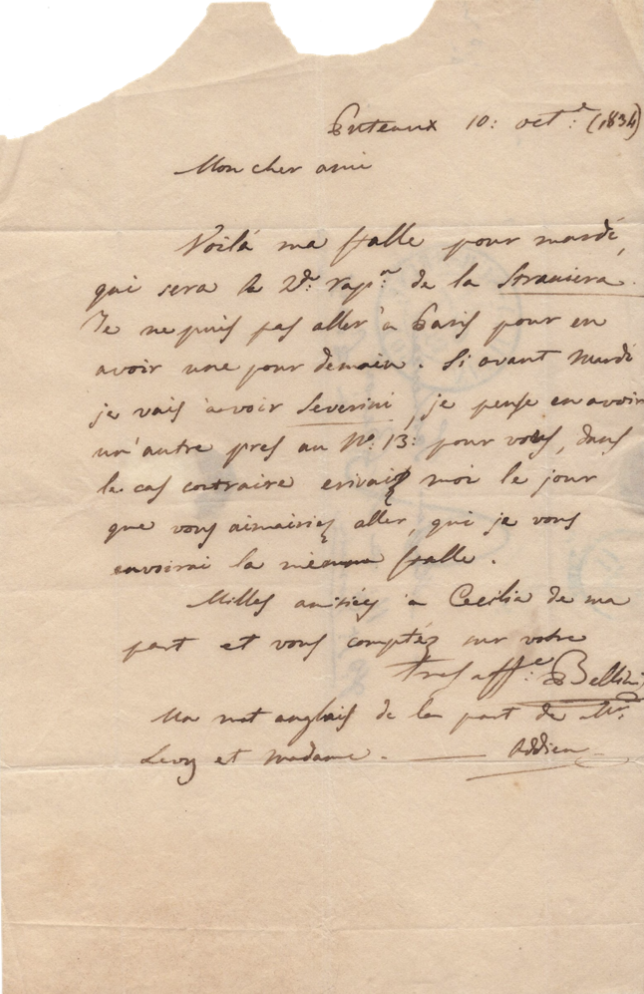 Puteaux 10: oct:e (1834)
Mon cher ami
Voilà ma stalle pour mardi,
qui sera la 2de: rapn: de la Straniera.
Je ne puis pas aller à Paris pour en
avoir une pour demain. Si avant Mardi
je vais avoir Severini, je pense en avoir
un'autre pres au No: 13: pour vous, dans
le cas contraire erivaiz moi le jour
que vous aimairiez aller, qui je vous
envoirai la même stalle.
Milles amitiéz a Cecilia de ma
part et vous comptéz sur votre
tres affe: Bellini
Un mot anglais de la part de Mr:
Levy et Madame. — Addieu